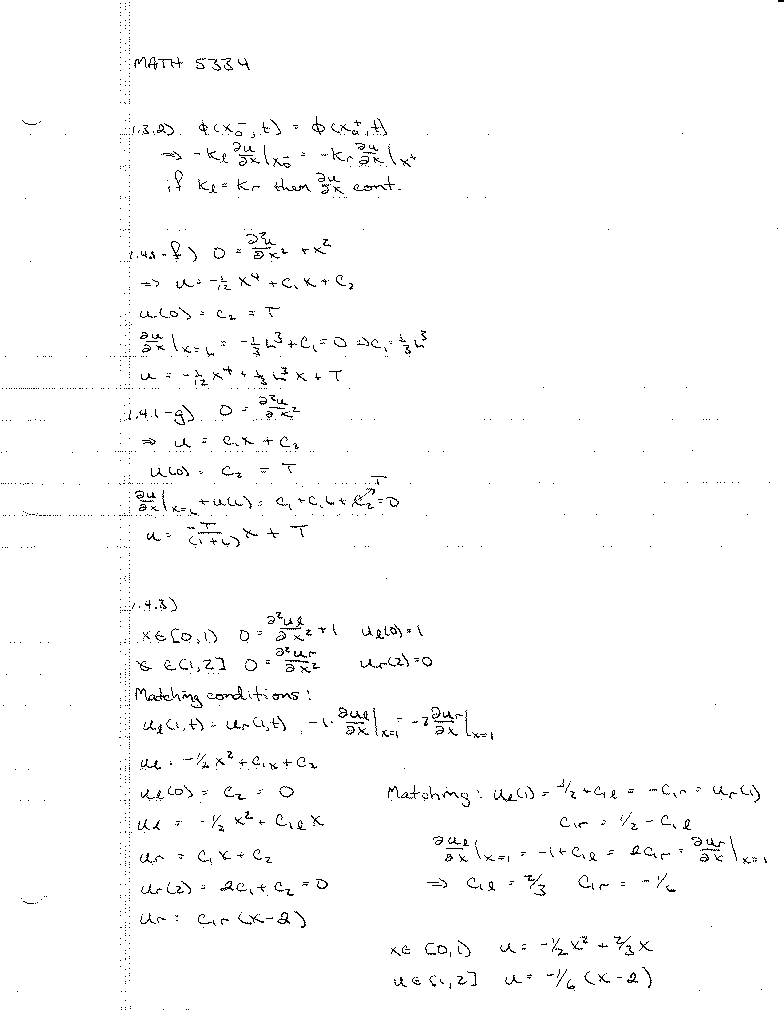 MATH 5334
1.3.2) ϕ(x₀⁻, t) = ϕ(x₀⁺, t)
⇒ -Kₗ ∂u/∂x |x₀⁻ = -Kᵣ ∂u/∂x |x⁺
if Kₗ = Kᵣ then ∂u/∂x cont.
1.41-f) 0 = ∂²u/∂x² + x²
⇒ u = -1/12 x⁴ + C₁x + C₂
u(0) = C₂ = T
∂u/∂x |x=L = -1/3 L³ + C₁ = 0 ⇒ C₁ = 1/3 L³
u = -1/12 x⁴ + 1/3 L³ x + T
1.4.1-g) 0 = ∂²u/∂x²
⇒ u = C₁x + C₂
u(0) = C₂ = T
∂u/∂x |x=L + u(L) = C₁ + C₁L + C₂ = 0
T
u = -T/(1+L) x + T
1.4.3)
x ∈ [0,1) 0 = ∂²uₗ/∂x² + 1 uₗ(0) = 1
x ∈ (1,2] 0 = ∂²uᵣ/∂x² uᵣ(2) = 0
Matching conditions:
uₗ(1,t) = uᵣ(1,t) -1· ∂uₗ/∂x |x=1 = -2 ∂uᵣ/∂x |x=1
uₗ = -1/2 x² + C₁x + C₂
uₗ(0) = C₂ = 0
uₗ = -1/2 x² + C₁ₗ x
uᵣ = C₁x + C₂
uᵣ(2) = 2C₁ + C₂ = 0
uᵣ = C₁ᵣ (x-2)
Matching: uₗ(1) = -1/2 + C₁ₗ = -C₁ᵣ = uᵣ(1)
C₁ᵣ = 1/2 - C₁ₗ
∂uₗ/∂x |x=1 = -1 + C₁ₗ = 2C₁ᵣ = ∂uᵣ/∂x |x=1
⇒ C₁ₗ = 2/3 C₁ᵣ = -1/6
x ∈ [0,1) u = -1/2 x² + 2/3 x
u ∈ (1,2] u = -1/6 (x-2)